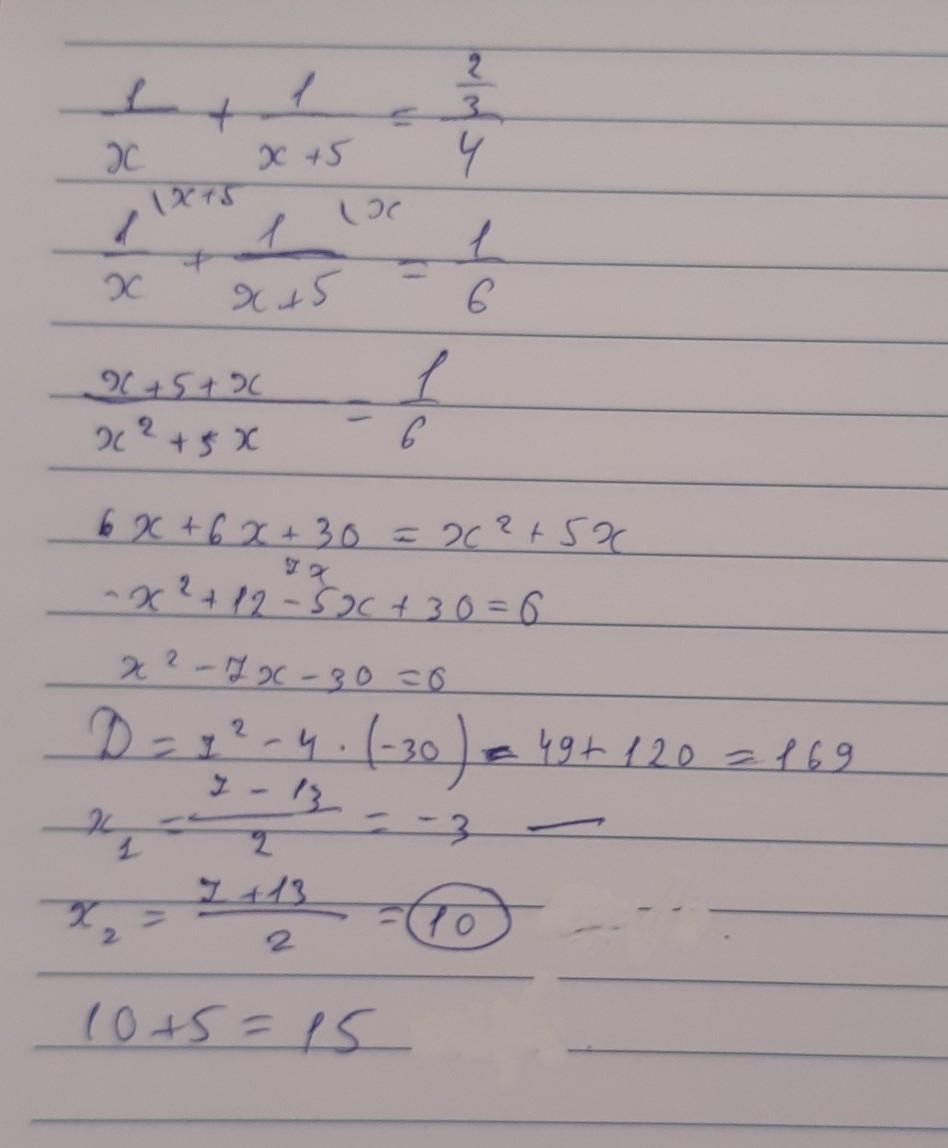 1/x + 1/(x+5) = (2/3)/4
1/x \x+5 + 1/(x+5) \x = 1/6
(x+5+x)/(x²+5x) = 1/6
6x+6x+30 = x²+5x
7x
-x²+12-5x+30=6
x²-7x-30=0
D=7²-4·(-30)=49+120=169
x₁=(7-13)/2=-3 —
x₂=(7+13)/2=10
10+5=15